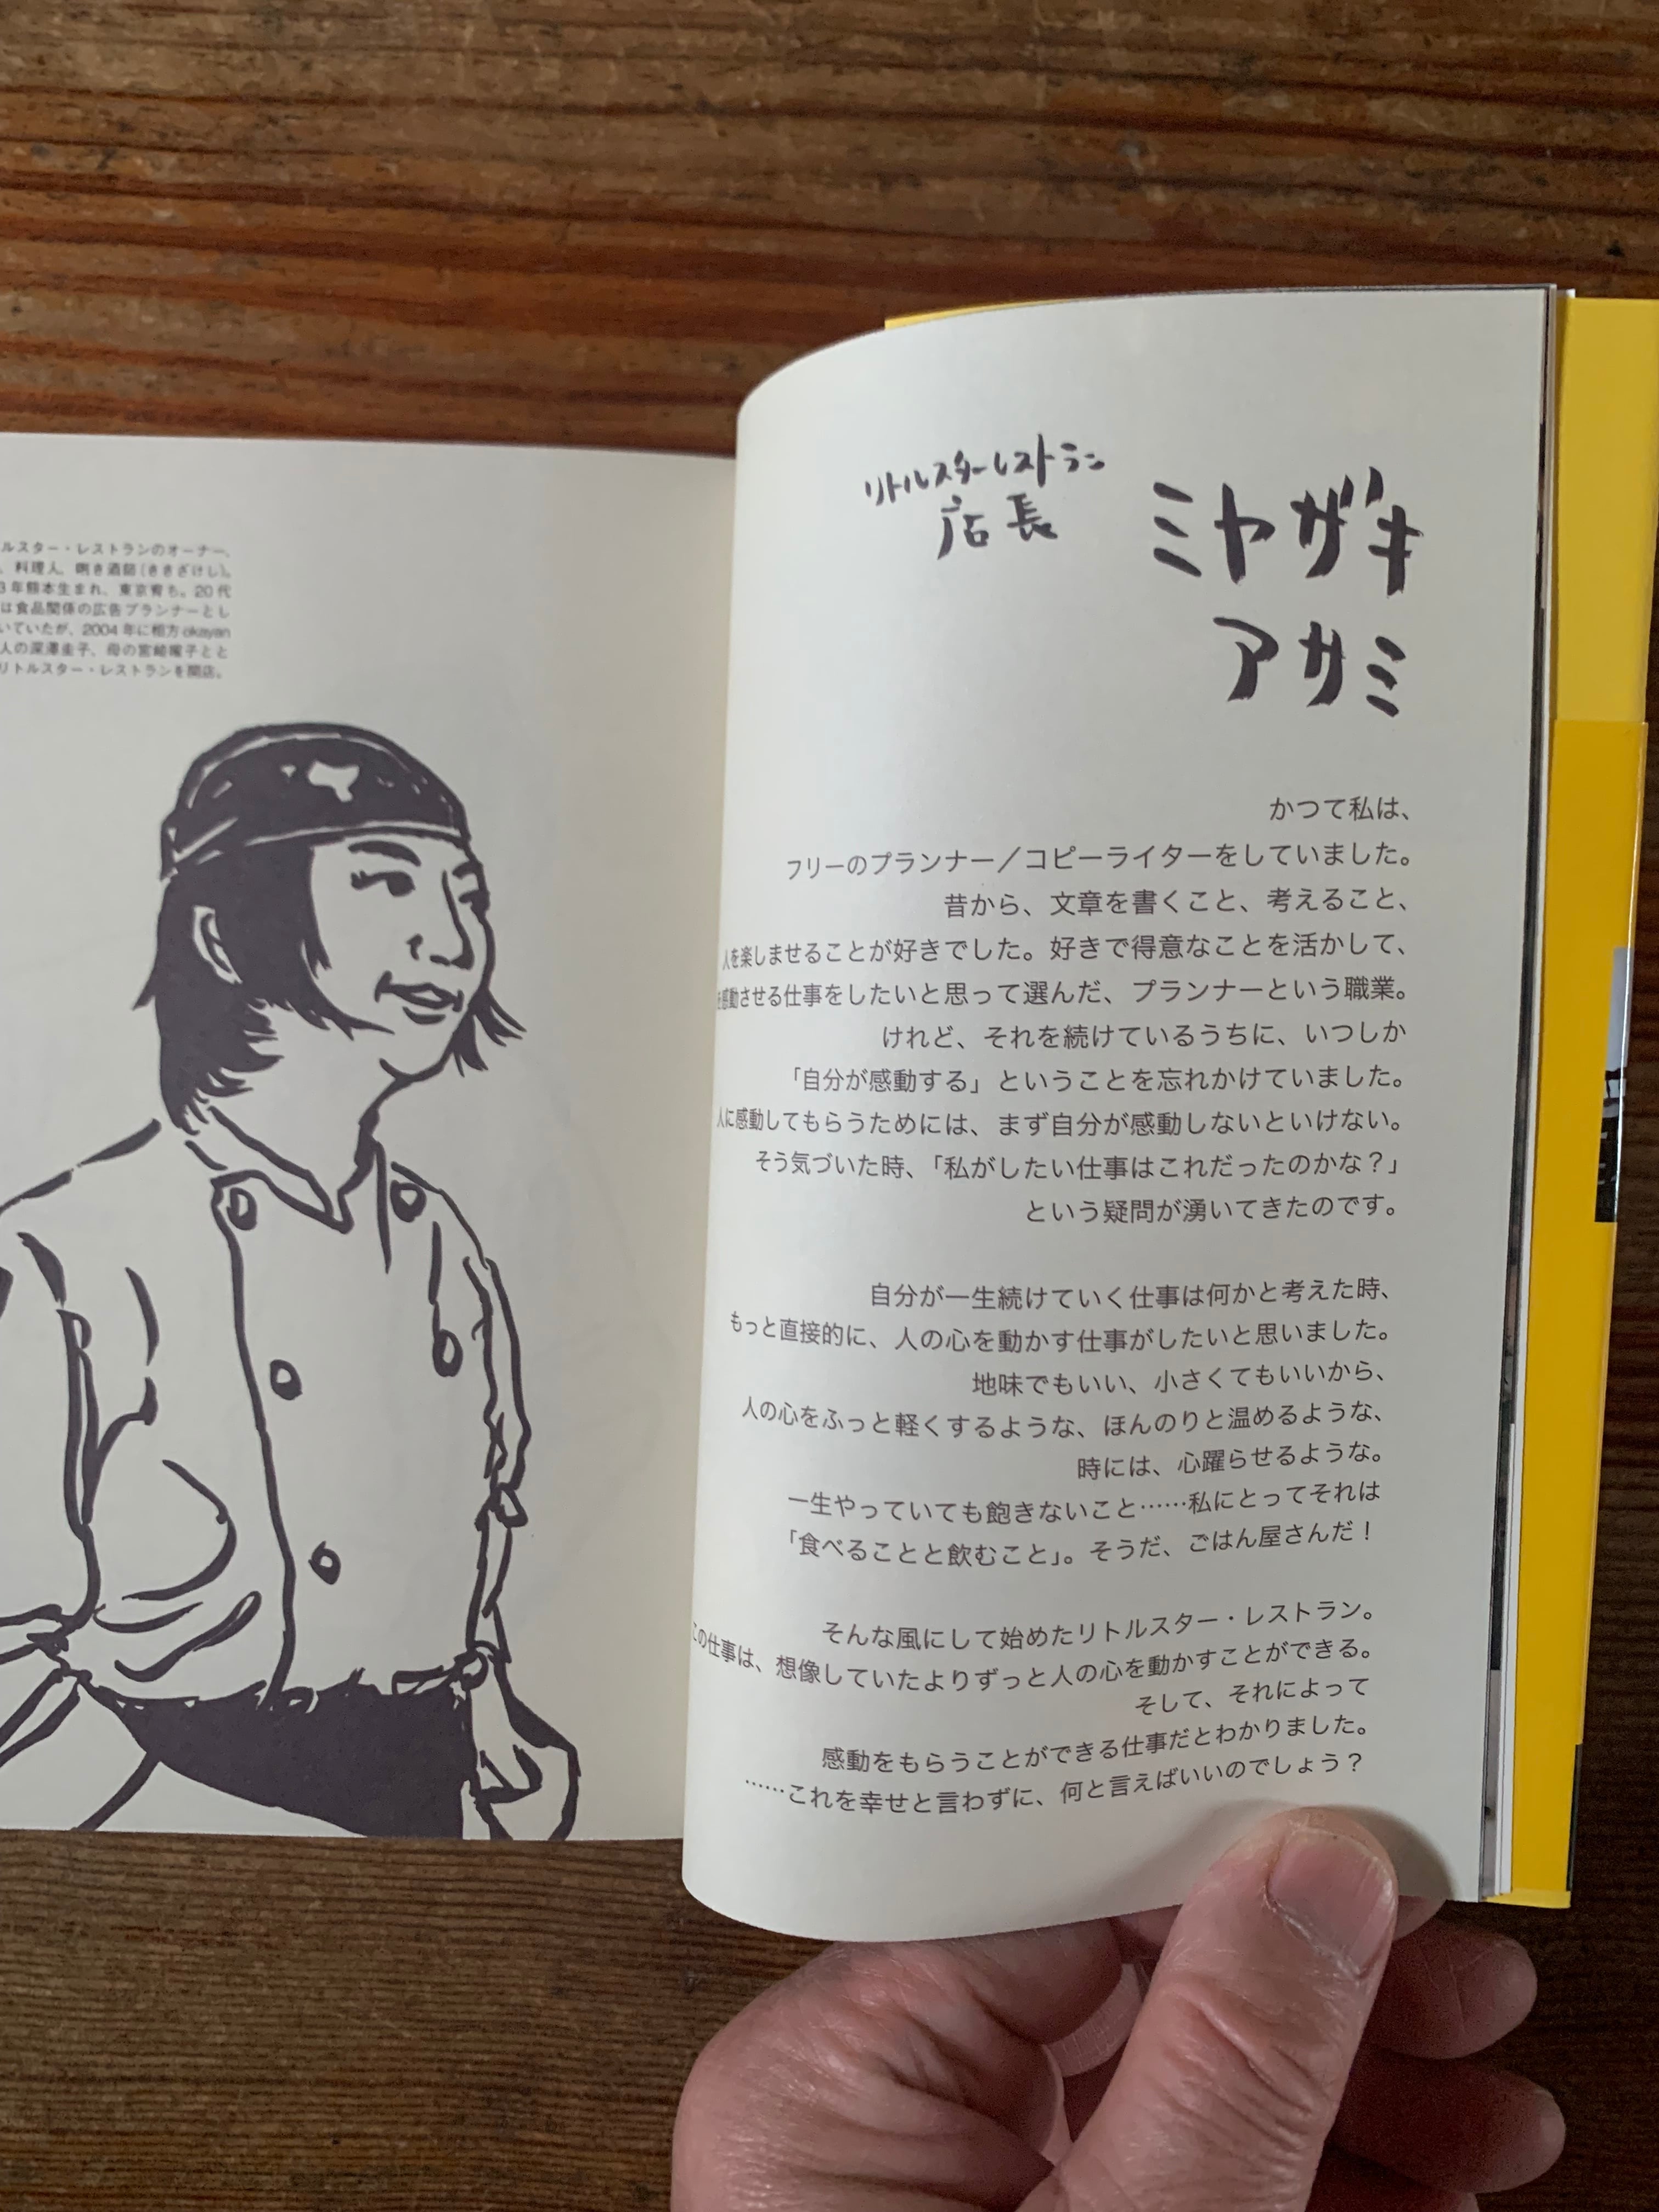 ルスター・レストランのオーナー、
料理人、唎き酒師(ききざけし)。
年熊本生まれ、東京育ち。20代
は食品関係の広告プランナーとし
いていたが、2004年に相方okayan
人の深澤圭子、母の宮崎曜子とと
リトルスター・レストランを開店。
リトルスターレストラン
店長
ミヤザキ
アサミ
かつて私は、
フリーのプランナー／コピーライターをしていました。
昔から、文章を書くこと、考えること、
人を楽しませることが好きでした。好きで得意なことを活かして、
感動させる仕事をしたいと思って選んだ、プランナーという職業。
けれど、それを続けているうちに、いつしか
「自分が感動する」ということを忘れかけていました。
人に感動してもらうためには、まず自分が感動しないといけない。
そう気づいた時、「私がしたい仕事はこれだったのかな？」
という疑問が湧いてきたのです。
自分が一生続けていく仕事は何かと考えた時、
もっと直接的に、人の心を動かす仕事がしたいと思いました。
地味でもいい、小さくてもいいから、
人の心をふっと軽くするような、ほんのりと温めるような、
時には、心躍らせるような。
一生やっていても飽きないこと……私にとってそれは
「食べることと飲むこと」。そうだ、ごはん屋さんだ！
そんな風にして始めたリトルスター・レストラン。
この仕事は、想像していたよりずっと人の心を動かすことができる。
そして、それによって
感動をもらうことができる仕事だとわかりました。
……これを幸せと言わずに、何と言えばいいのでしょう？